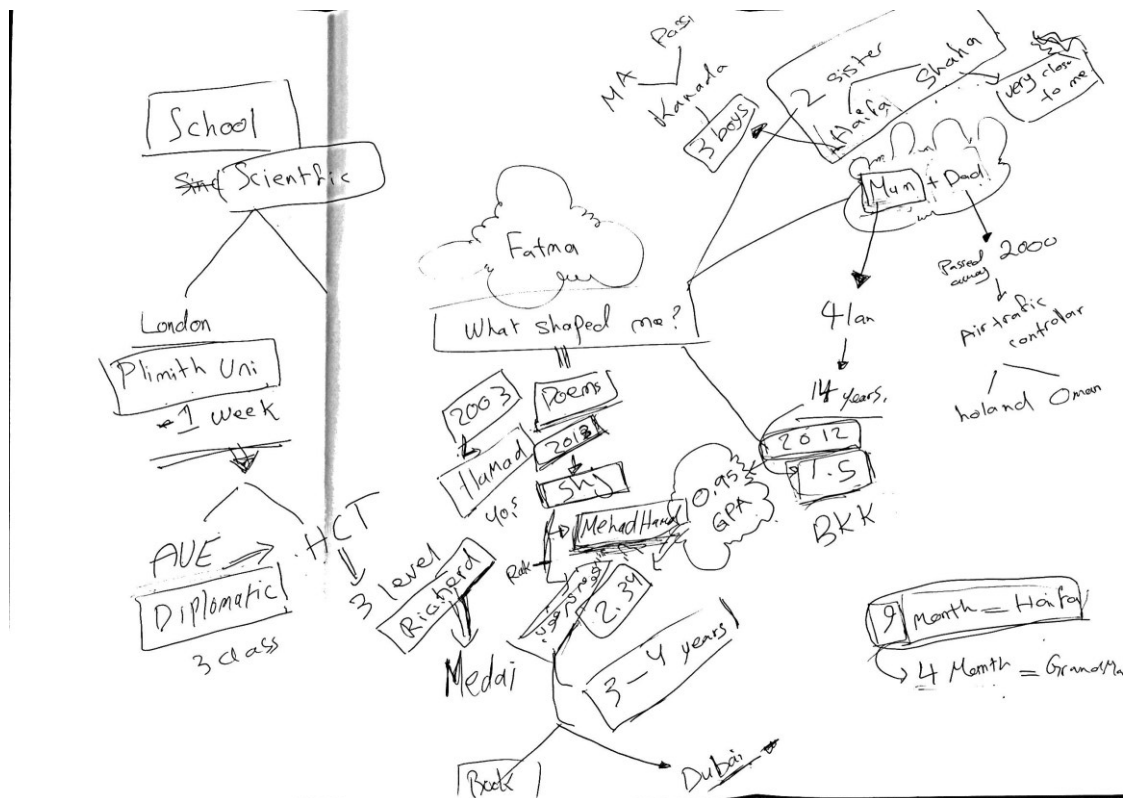 School
Scientfic
London
Plimith Uni
1 week
AUE
HCT
Diplomatic
3 class
3 level
Richerd
Medai
Fatma
What shaped me?
2003
Hamad
Poems
2018
Shj
Mehad Hamd
Rak
0.95
GPA
2.34
3-4 years
Book
Dubai
2 sister
Haifa
Shaha
very close
to me
3 boys
Kanada
MA
Passi
Mum + Dad
4 lan
14 years.
2012
1.5
BKK
Passed
away
2000
Air trafic
controlar
holand
Oman
9 Month = Haifa
4 Month = GrandMa